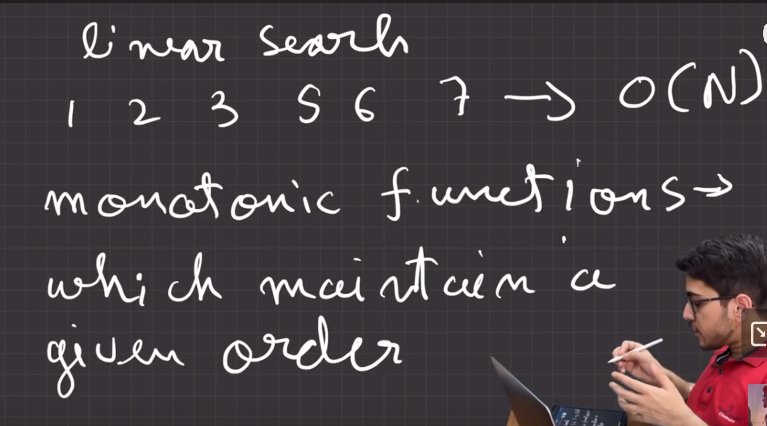 linear search
1 2 3 5 6 7 → O(N)
monotonic functions →
which maintain a
given order